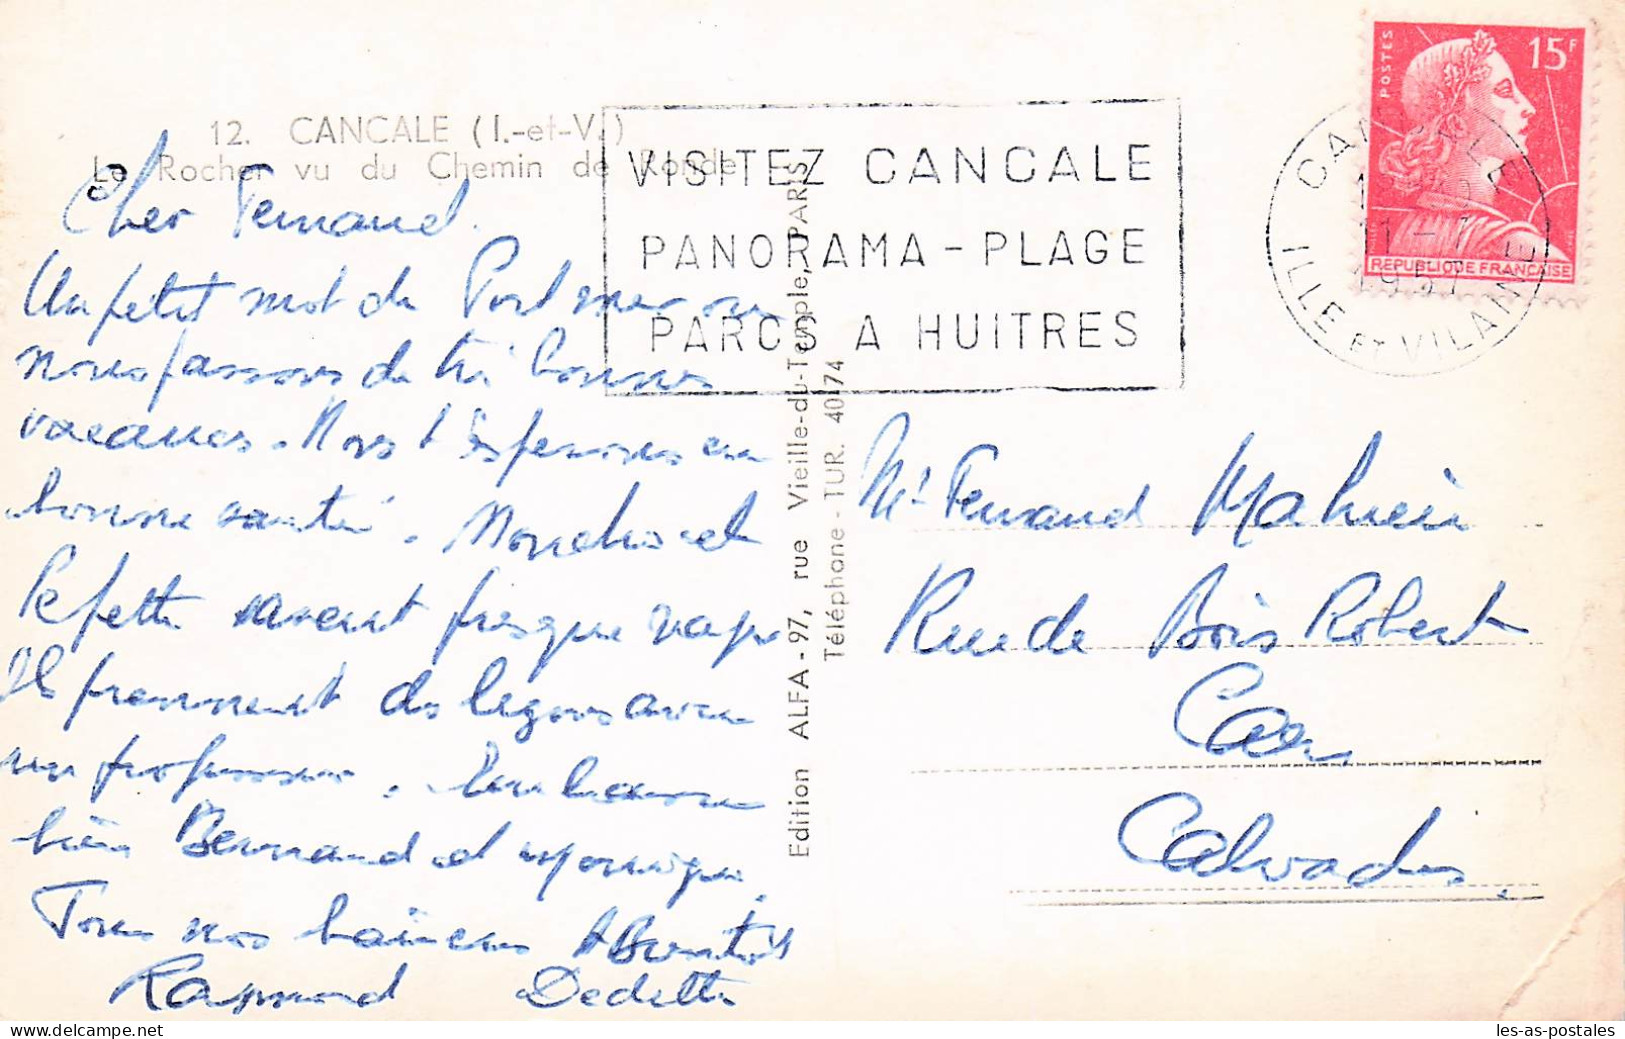 12. CANCALE (I.-et-V.)
Le Rocher vu du Chemin de Ronde
Cher Fernand.
Un petit mot de Port mer ou
nous passons de très bonnes
vacances. Nous t'espérons en
bonne santé. et
Pepette savent presque nager
Ils prennent des leçons avec
un professeur. Embrasse
bien Bernard et Monique.
Tous nos baisers
Raymond Dedette
Edition ALFA - 97, rue Vieille-du-Temple, PARIS
Téléphone - TUR. 40-74
VISITEZ CANCALE
PANORAMA - PLAGE
PARCS A HUITRES
CANCALE
11-7
1957
ILLE ET VILAINE
POSTES
15F
REPUBLIQUE FRANCAISE
Mr Fernand Mahieu
Rue de Bois Robert
Caen
Calvados.
les-as-postales